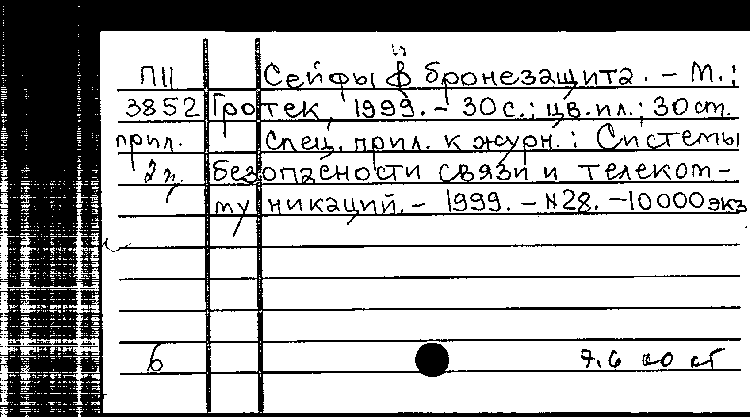 и
П11 Сейфы & бронезащита. - М.:
3852 Гротек, 1999. - 30 с.: цв.ил.; 30 ст.
прил. Спец. прил. к журн.: Системы
2 э. безопасности связи и телеком-
муникаций. - 1999. - N28. - 10000 экз
б